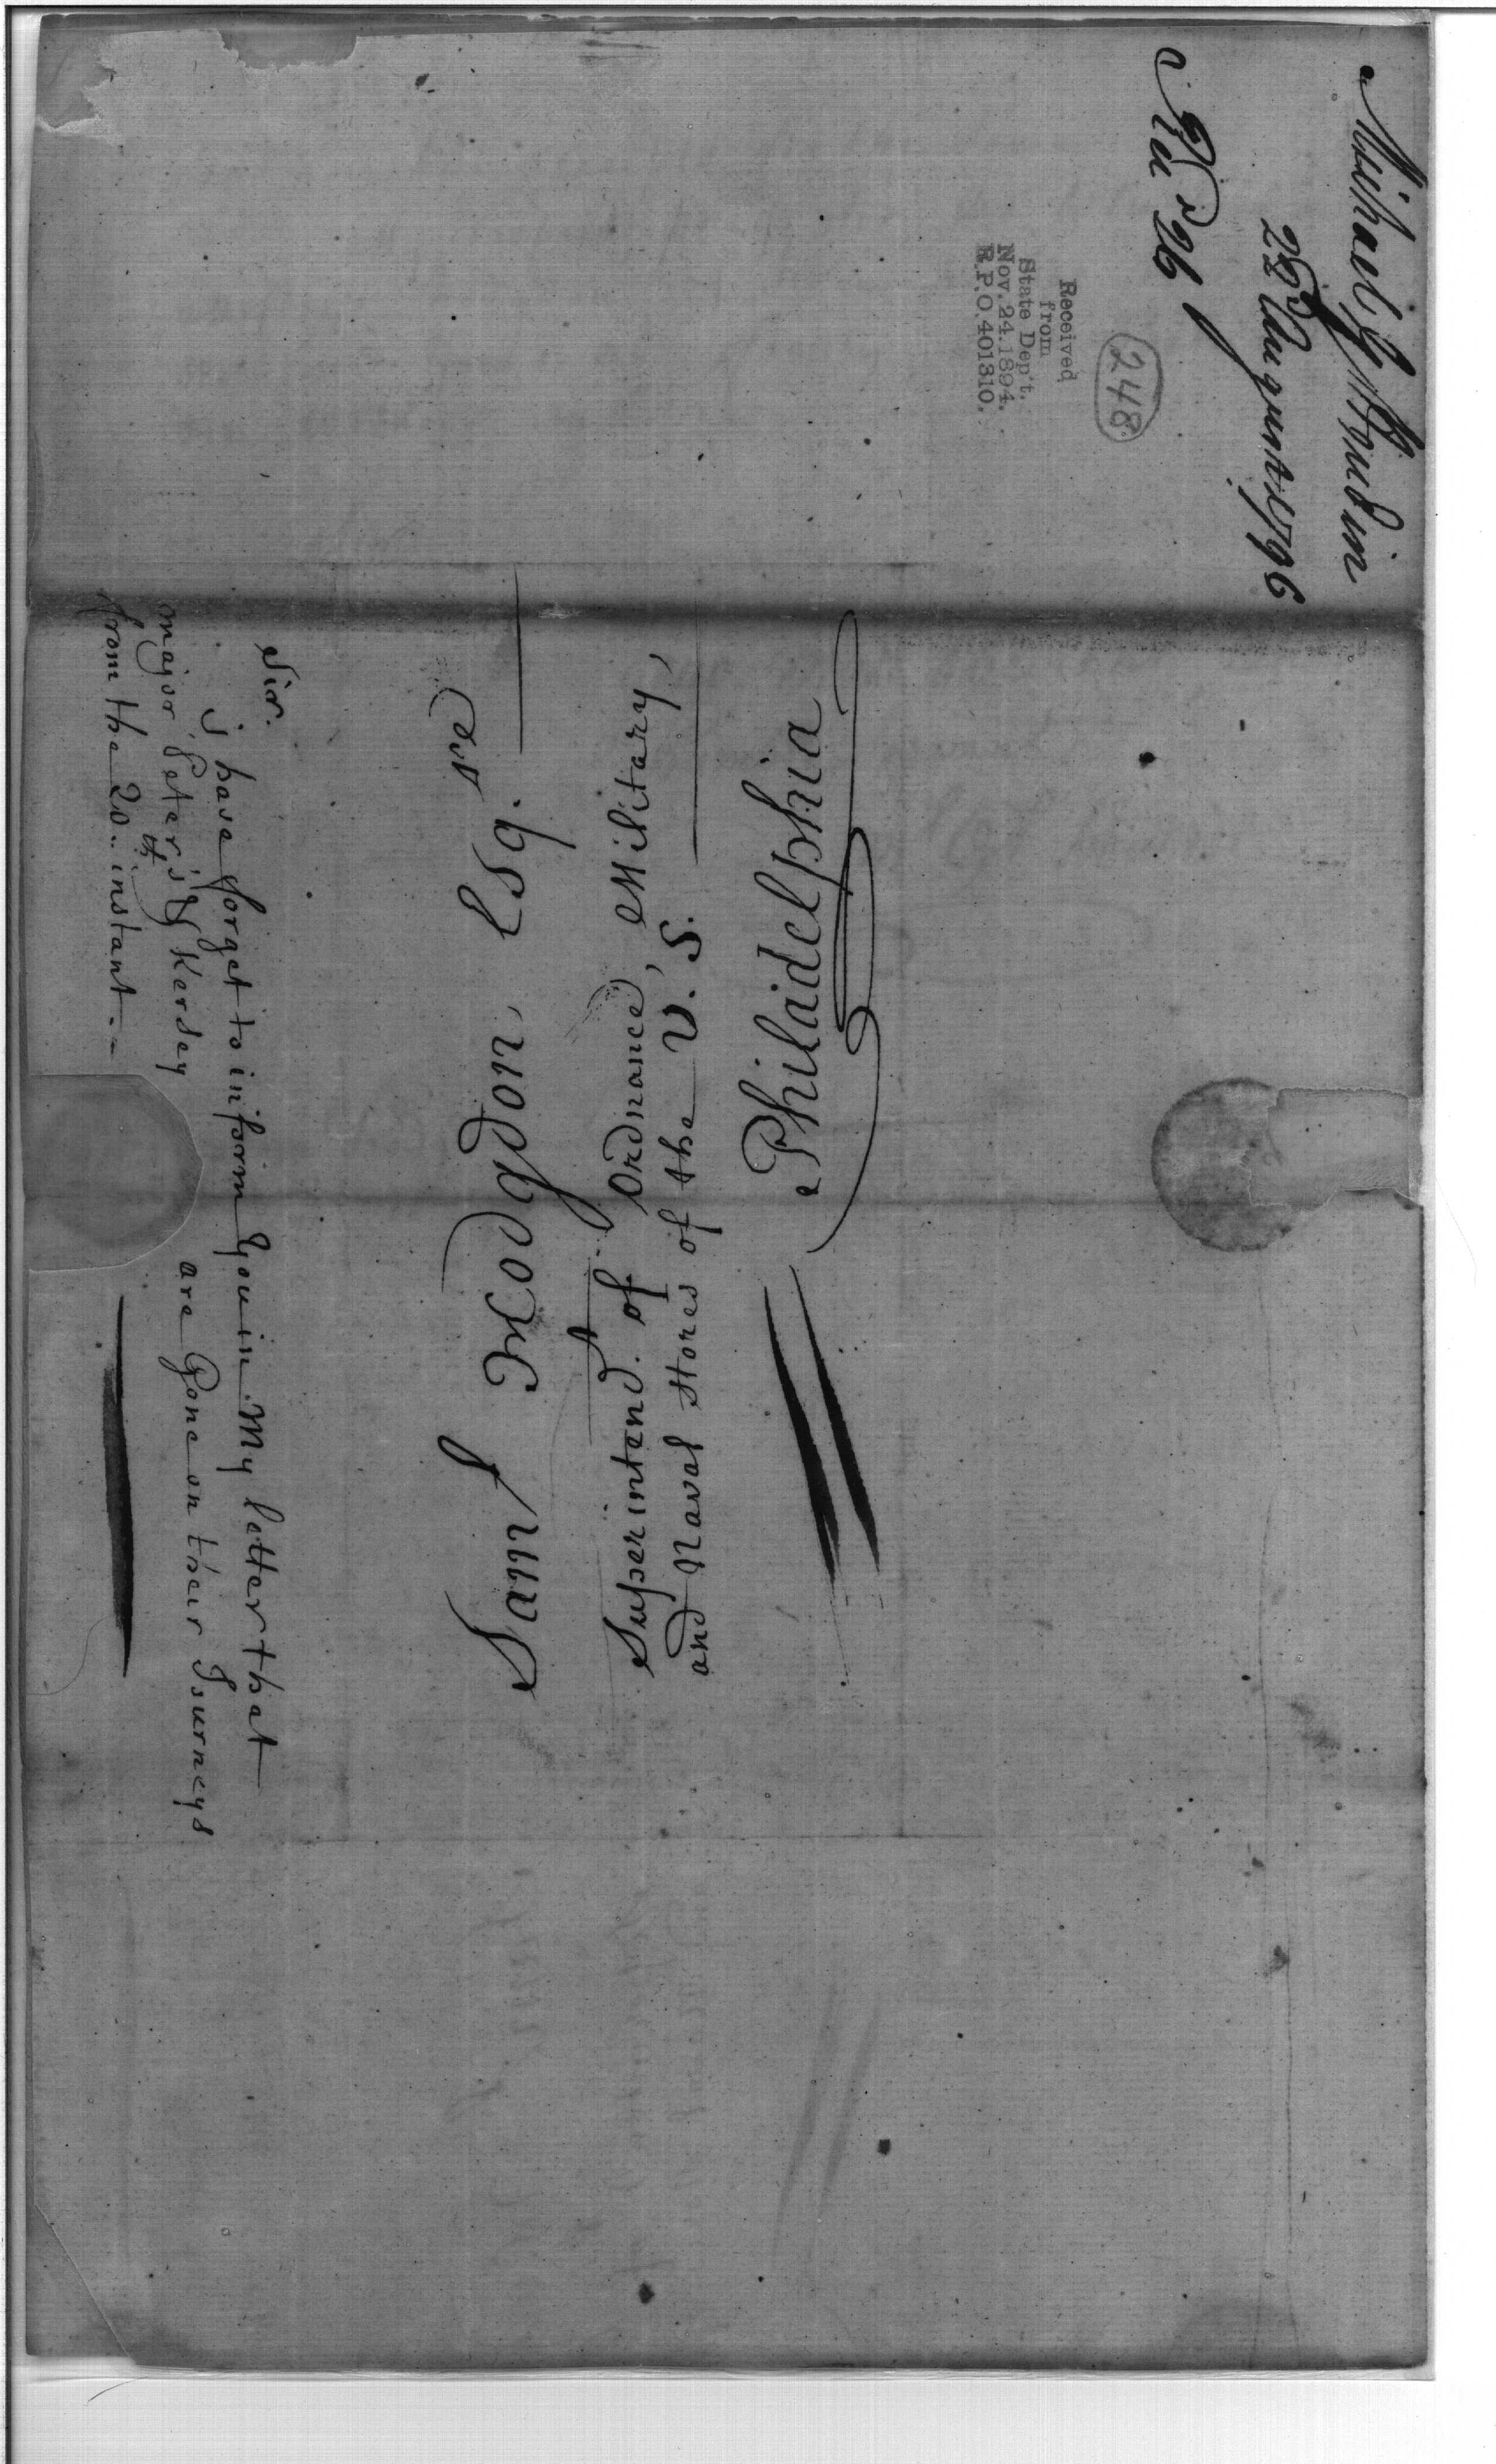 Michael G Houdin
22d August 1796
Recd 26
248
Received
from
State Dep't.
Nov. 24. 1894.
R.P.O. 401310.
Saml Hodgdon, Esq.re
Superintend.t of Ordnance, Military,
and Naval Stores of the U. S.
Philadelphia
Sir.
j have forget to inform you in My letter that
major Peter's & Kersey are Gone on their Journeys
from the 20..th instant.-